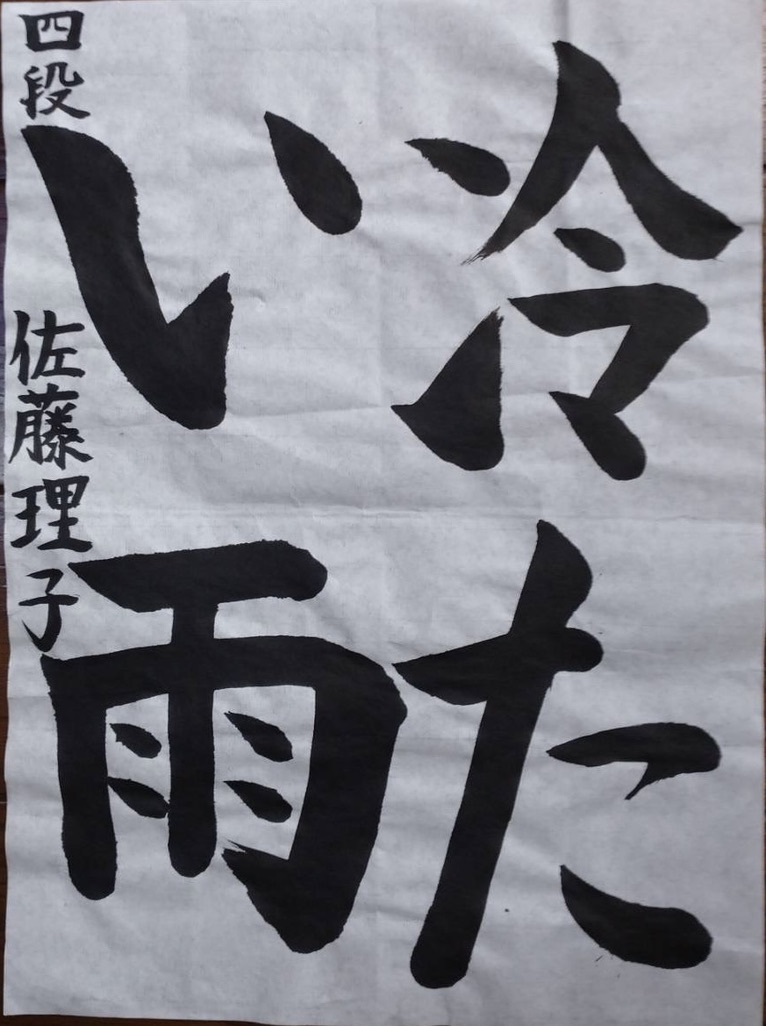 冷た
い雨
四段 佐藤理子